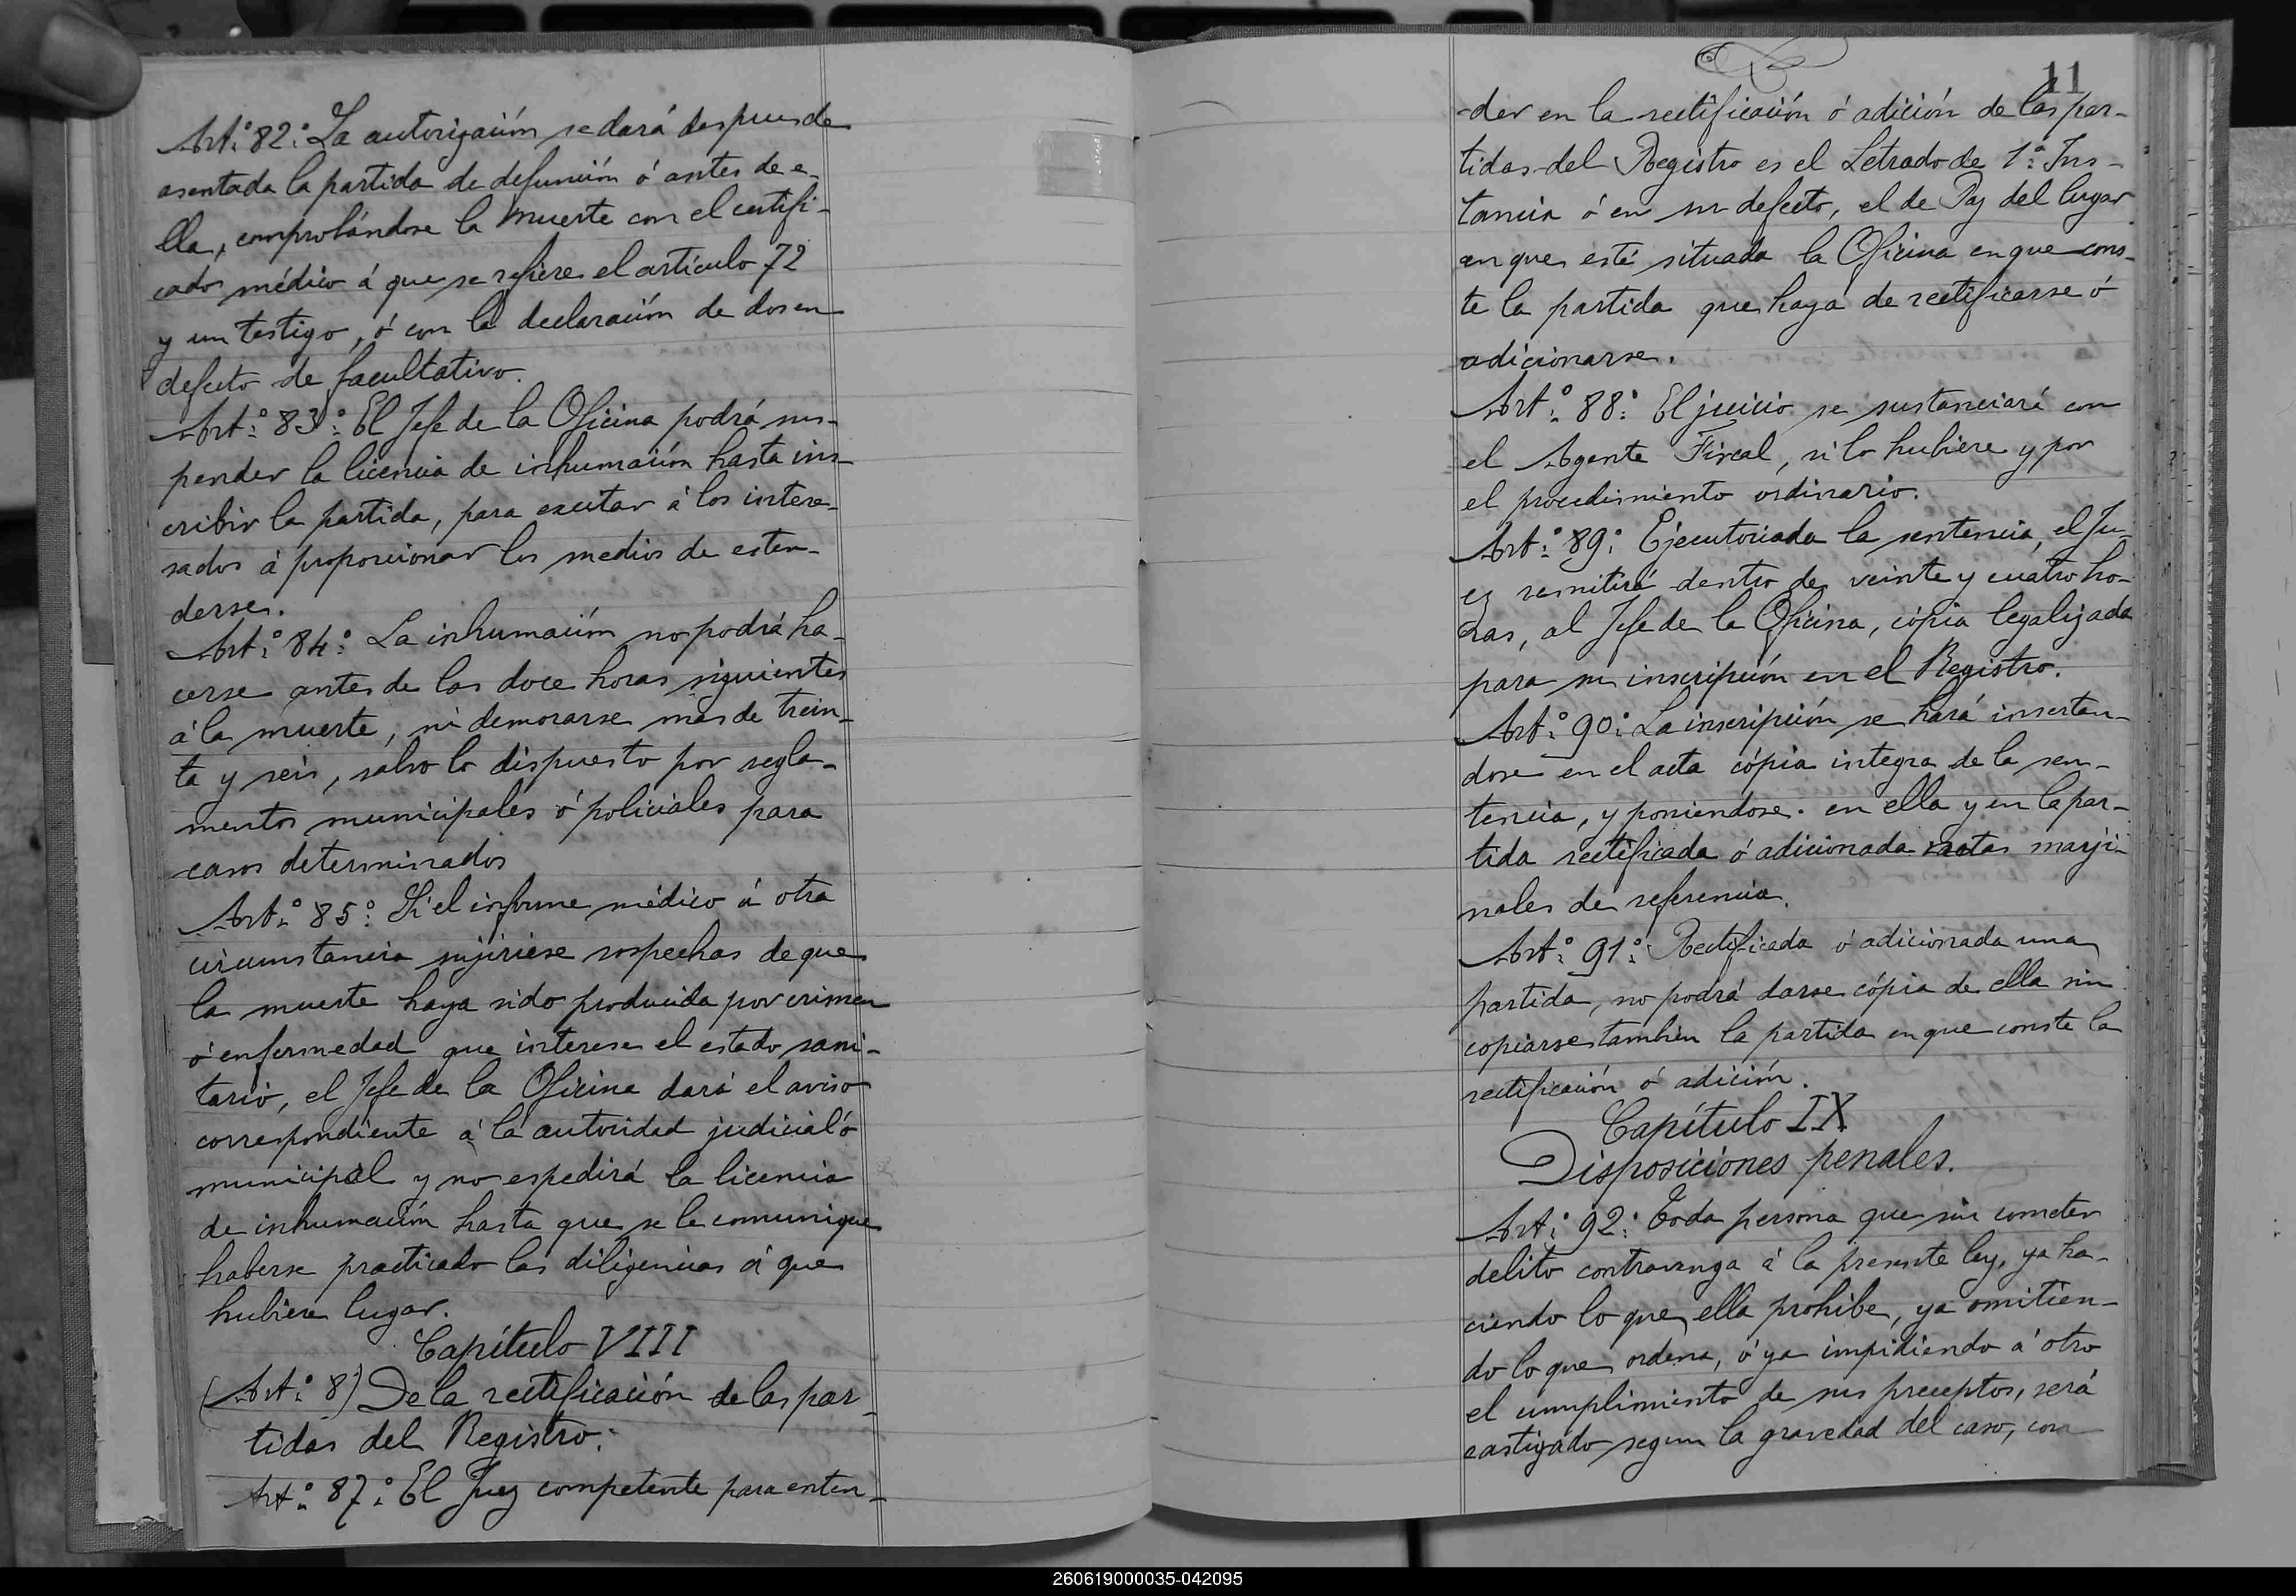 Art.º 82.º La autorización se dará despues de
asentada la partida de defunción ó antes de e-
lla, comprobándose la muerte con el certifi-
cado médico á que se refiere el artículo 72
y un testigo, ó con la declaración de dos en
defecto de facultativo.
Art.º 83.º El Jefe de la Oficina podrá sus-
pender la licencia de inhumación hasta ins-
cribir la partida, para excitar á los intere-
sados á proporcionar los medios de esten-
derse.
Art.º 84.º La inhumación no podrá ha-
cerse antes de las doce horas siguientes
á la muerte, ni demorarse mas de trein-
ta y seis, salvo lo dispuesto por regla-
mentos municipales ó policiales para
casos determinados
Art.º 85.º Si el informe médico á otra
circunstancia sujiriese sospechas de que
la muerte haya sido producida por crimen
ó enfermedad que interese el estado sani-
tario, el Jefe de la Oficina dará el aviso
correspondiente á la autoridad judicial ó
municipal y no espedirá la licencia
de inhumación hasta que se le comunique
haberse practicado las diligencias á que
hubiere lugar.
Capítulo VIII
(Art.º 8) De la rectificación de las par-
tidas del Registro.
Art.º 87.º El Juez competente para enten-
11
-der en la rectificación ó adición de las par-
tidas del Registro es el Letrado de 1.º Ins-
tancia ó en su defecto, el de Paz del lugar
en que esté situada la Oficina en que cons-
te la partida que haya de rectificarse ó
adicionarse.
Art.º 88.º El juicio se sustanciará con
el Agente Fiscal, si lo hubiere y por
el procedimiento ordinario.
Art.º 89.º Ejecutoriada la sentencia, el Ju-
ez remitirá dentro de veinte y cuatro ho-
ras, al Jefe de la Oficina, cópia legalizada
para su inscripción en el Registro.
Art.º 90.º La inscripción se hará insertan-
dose en el acta cópia integra de la sen-
tencia, y poniendose en ella y en la par-
tida rectificada ó adicionada notas marji-
nales de referencia.
Art.º 91.º Rectificada ó adicionada una
partida, no podrá darse cópia de ella sin
copiarse tambien la partida en que conste la
rectificación ó adición.
Capítulo IX
Disposiciones penales.
Art.º 92.º Toda persona que sin cometer
delito contravenga á la presente ley, ya ha-
ciendo lo que ella prohibe, ya omitien-
do lo que ordena, ó ya impidiendo á otro
el cumplimiento de sus preceptos, será
castigado segun la gravedad del caso, con
260619000035-042095